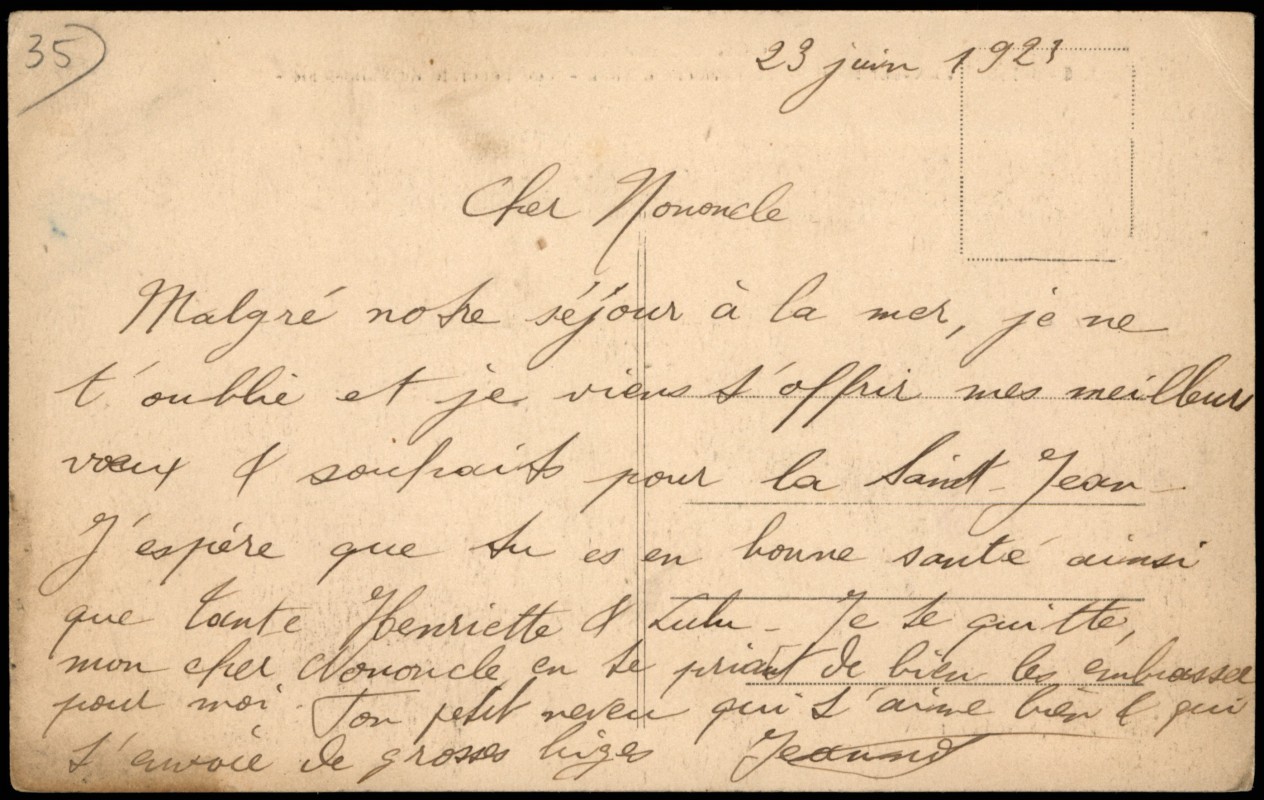 35
23 juin 1921
Cher Nononcle
Malgré notre séjour à la mer, je ne
t'oublie et je viens t'offrir mes meilleurs
vœux & souhaits pour la Saint-Jean -
J'espère que tu es en bonne santé ainsi
que tante Henriette & Lulu - Je te quitte,
mon cher Nononcle en te priant de bien les embrasser
pour moi. Ton petit neveu qui t'aime bien & qui
t'envoie de grosses bizes Jeannot